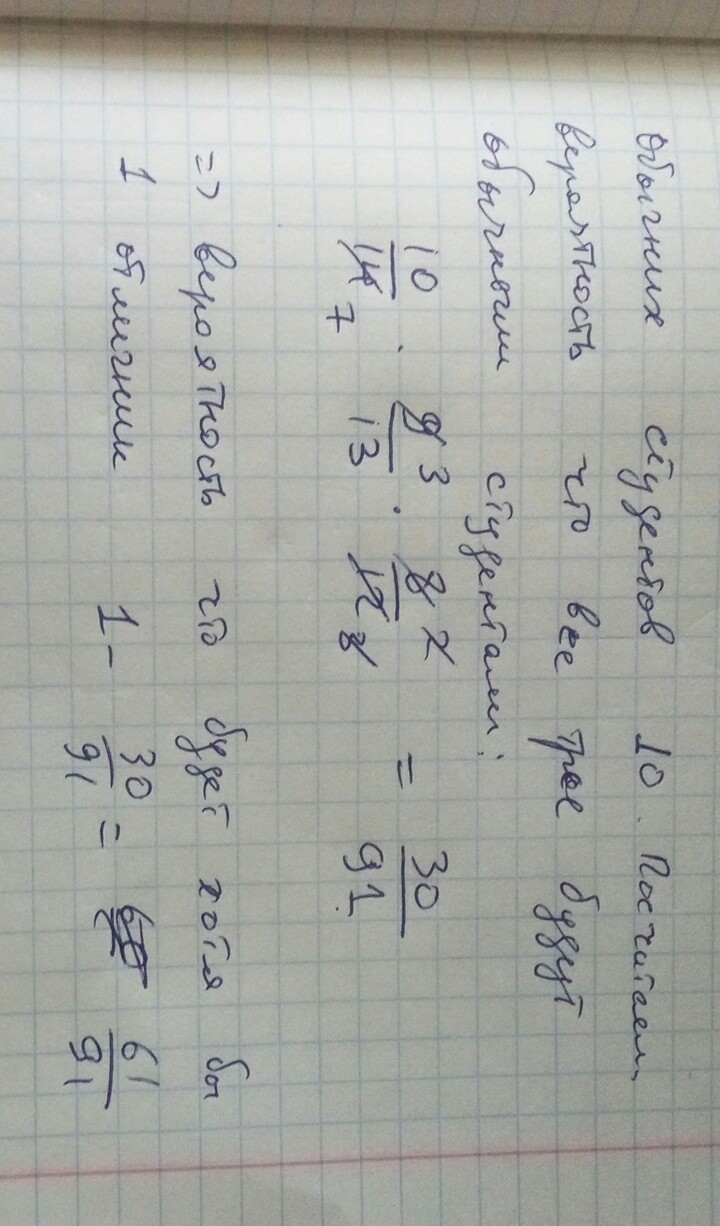 Обычних студентов 10. Посчитаем,
вероятность что все трое будут
обычными студентами:
10/14 7 · 9 3/13 · 8 2/12 3 = 30/91
=> вероятность что будет хотя бы
1 отличник 1 - 30/91 = 61/91